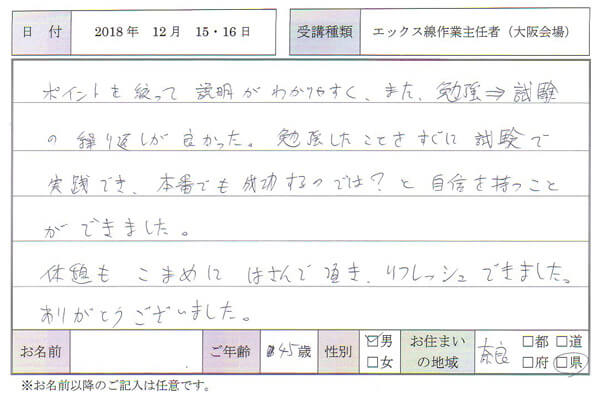 日付 2018年 12月 15・16日 受講種類 エックス線作業主任者（大阪会場）
ポイントを絞って説明がわかりやすく、また、勉強⇒試験
の繰り返しが良かった。勉強したことをすぐに試験で
実践でき、本番でも成功するのでは？と自信を持つこと
ができました。
休憩もこまめにはさんで頂き、リフレッシュできました。
ありがとうございました。
お名前 ご年齢 45歳 性別 ☑男 □女 お住まいの地域 奈良 □都 □道 □府 □県
※お名前以降のご記入は任意です。